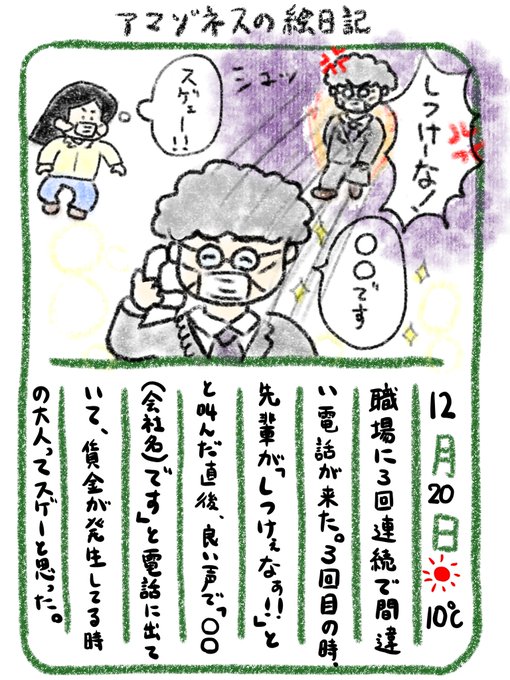 アマゾネスの絵日記
しつけーな!
シュッ
スゲェー!!
〇〇です
12月20日 10℃
職場に3回連続で間違
い電話が来た。3回目の時、
先輩が「しつけぇなぁ!!」と
と叫んだ直後、良い声で「〇〇
(会社名)です」と電話に出て
いて、賃金が発生してる時
の大人ってスゲーと思った。